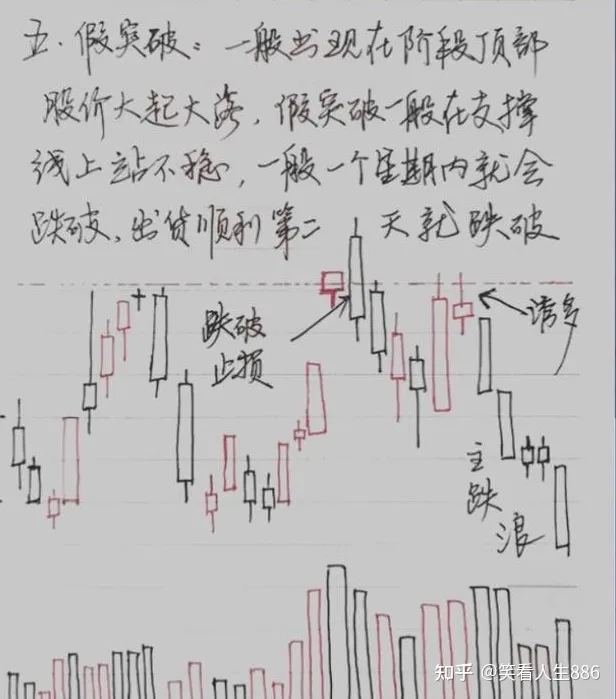 五.假突破：一般出现在阶段顶部
股价大起大落，假突破一般在支撑
线上站不稳，一般一个星期内就会
跌破、出货顺利第二天就跌破
跌破
止损
诱多
主
跌
浪
知乎 @笑看人生886